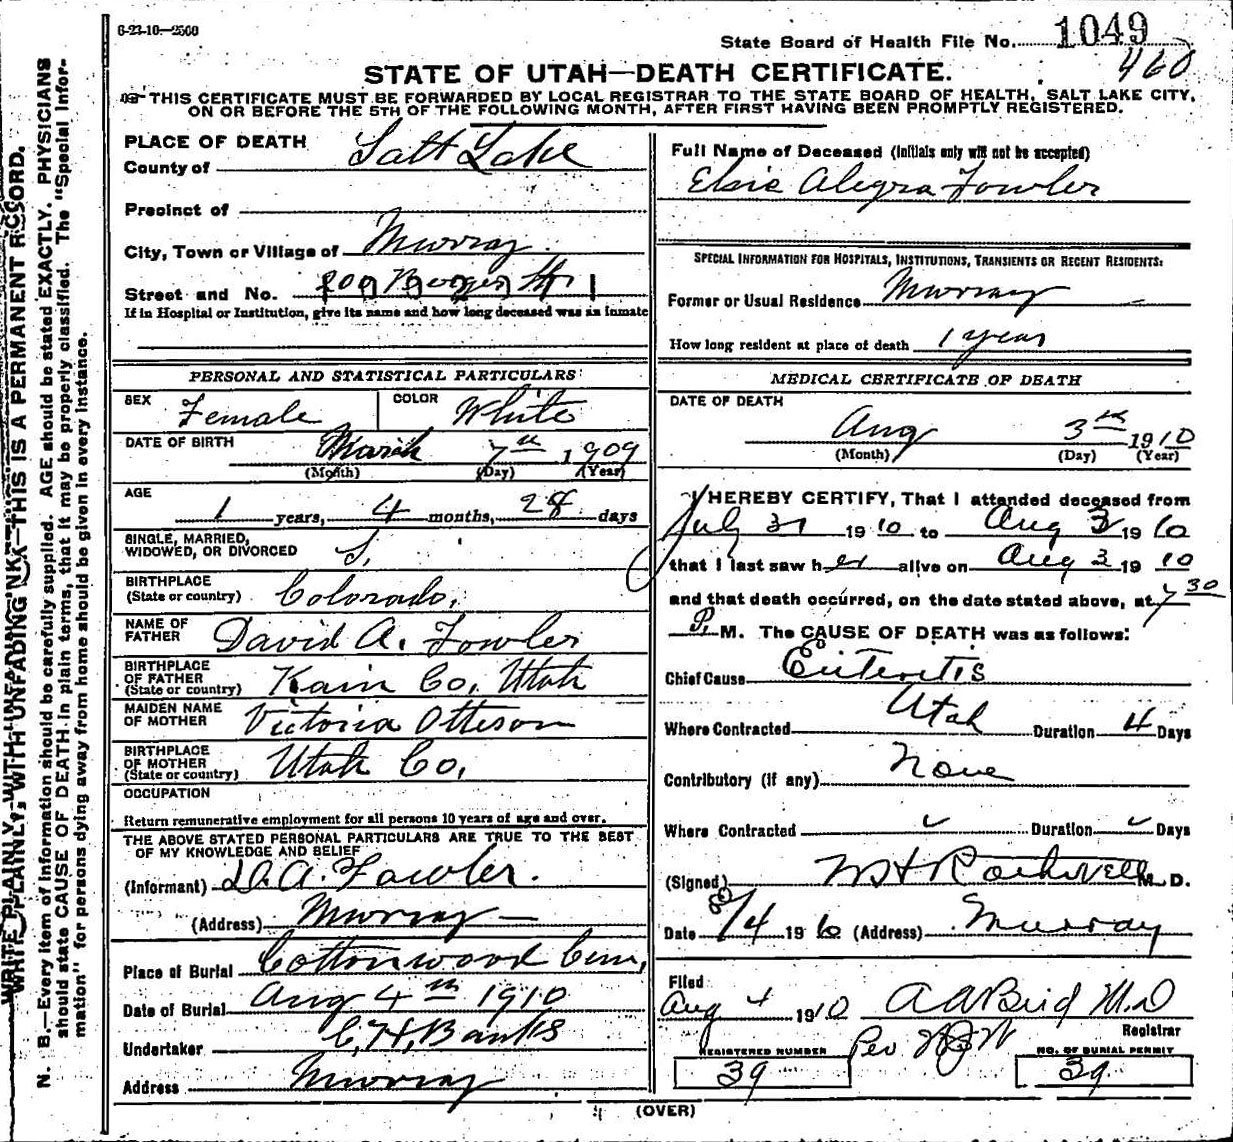 6-23-10—2500
State Board of Health File No. 1049
460
STATE OF UTAH—DEATH CERTIFICATE.
THIS CERTIFICATE MUST BE FORWARDED BY LOCAL REGISTRAR TO THE STATE BOARD OF HEALTH, SALT LAKE CITY,
ON OR BEFORE THE 5TH OF THE FOLLOWING MONTH, AFTER FIRST HAVING BEEN PROMPTLY REGISTERED.
WRITE PLAINLY, WITH UNFADING INK—THIS IS A PERMANENT RECORD.
N. B.—Every item of information should be carefully supplied. AGE should be stated EXACTLY. PHYSICIANS
should state CAUSE OF DEATH in plain terms, that it may be properly classified. The "Special Infor-
mation" for persons dying away from home should be given in every instance.
PLACE OF DEATH
County of Salt Lake
Precinct of
City, Town or Village of Murray
Street and No.
If in Hospital or Institution, give its name and how long deceased was an inmate
PERSONAL AND STATISTICAL PARTICULARS
SEX Female COLOR White
DATE OF BIRTH March 7th 1909
(Month) (Day) (Year)
AGE
1 years, 4 months, 28 days
SINGLE, MARRIED,
WIDOWED, OR DIVORCED S.
BIRTHPLACE
(State or country) Colorado.
NAME OF
FATHER David A. Fowler
BIRTHPLACE
OF FATHER
(State or country) Kain Co. Utah
MAIDEN NAME
OF MOTHER Victoria Otteson
BIRTHPLACE
OF MOTHER
(State or country) Utah Co.
OCCUPATION
Return remunerative employment for all persons 10 years of age and over.
THE ABOVE STATED PERSONAL PARTICULARS ARE TRUE TO THE BEST
OF MY KNOWLEDGE AND BELIEF
(Informant) D. A. Fowler.
(Address) Murray
Place of Burial Cottonwood Cem.
Date of Burial Aug 4th 1910
Undertaker C. H. Banks
Address Murray
Full Name of Deceased (Initials only will not be accepted)
Elsie Alegra Fowler
SPECIAL INFORMATION FOR HOSPITALS, INSTITUTIONS, TRANSIENTS OR RECENT RESIDENTS:
Former or Usual Residence Murray
How long resident at place of death 1 year
MEDICAL CERTIFICATE OF DEATH
DATE OF DEATH
Aug 3th 1910
(Month) (Day) (Year)
I HEREBY CERTIFY, That I attended deceased from
July 31 1910 to Aug 3 1910
that I last saw her alive on Aug 3 1910
and that death occurred, on the date stated above, at 7 30
P. M. The CAUSE OF DEATH was as follows:
Chief Cause Enteretis
Where Contracted Utah Duration 4 Days
Contributory (if any) None
Where Contracted Duration Days
(Signed) Rothwell M. D.
Date 8/4 1910 (Address) Murray
Filed
Aug 4 1910 A A Bird M.D
Registrar
Per
REGISTERED NUMBER
39
NO. OF BURIAL PERMIT
39
(OVER)